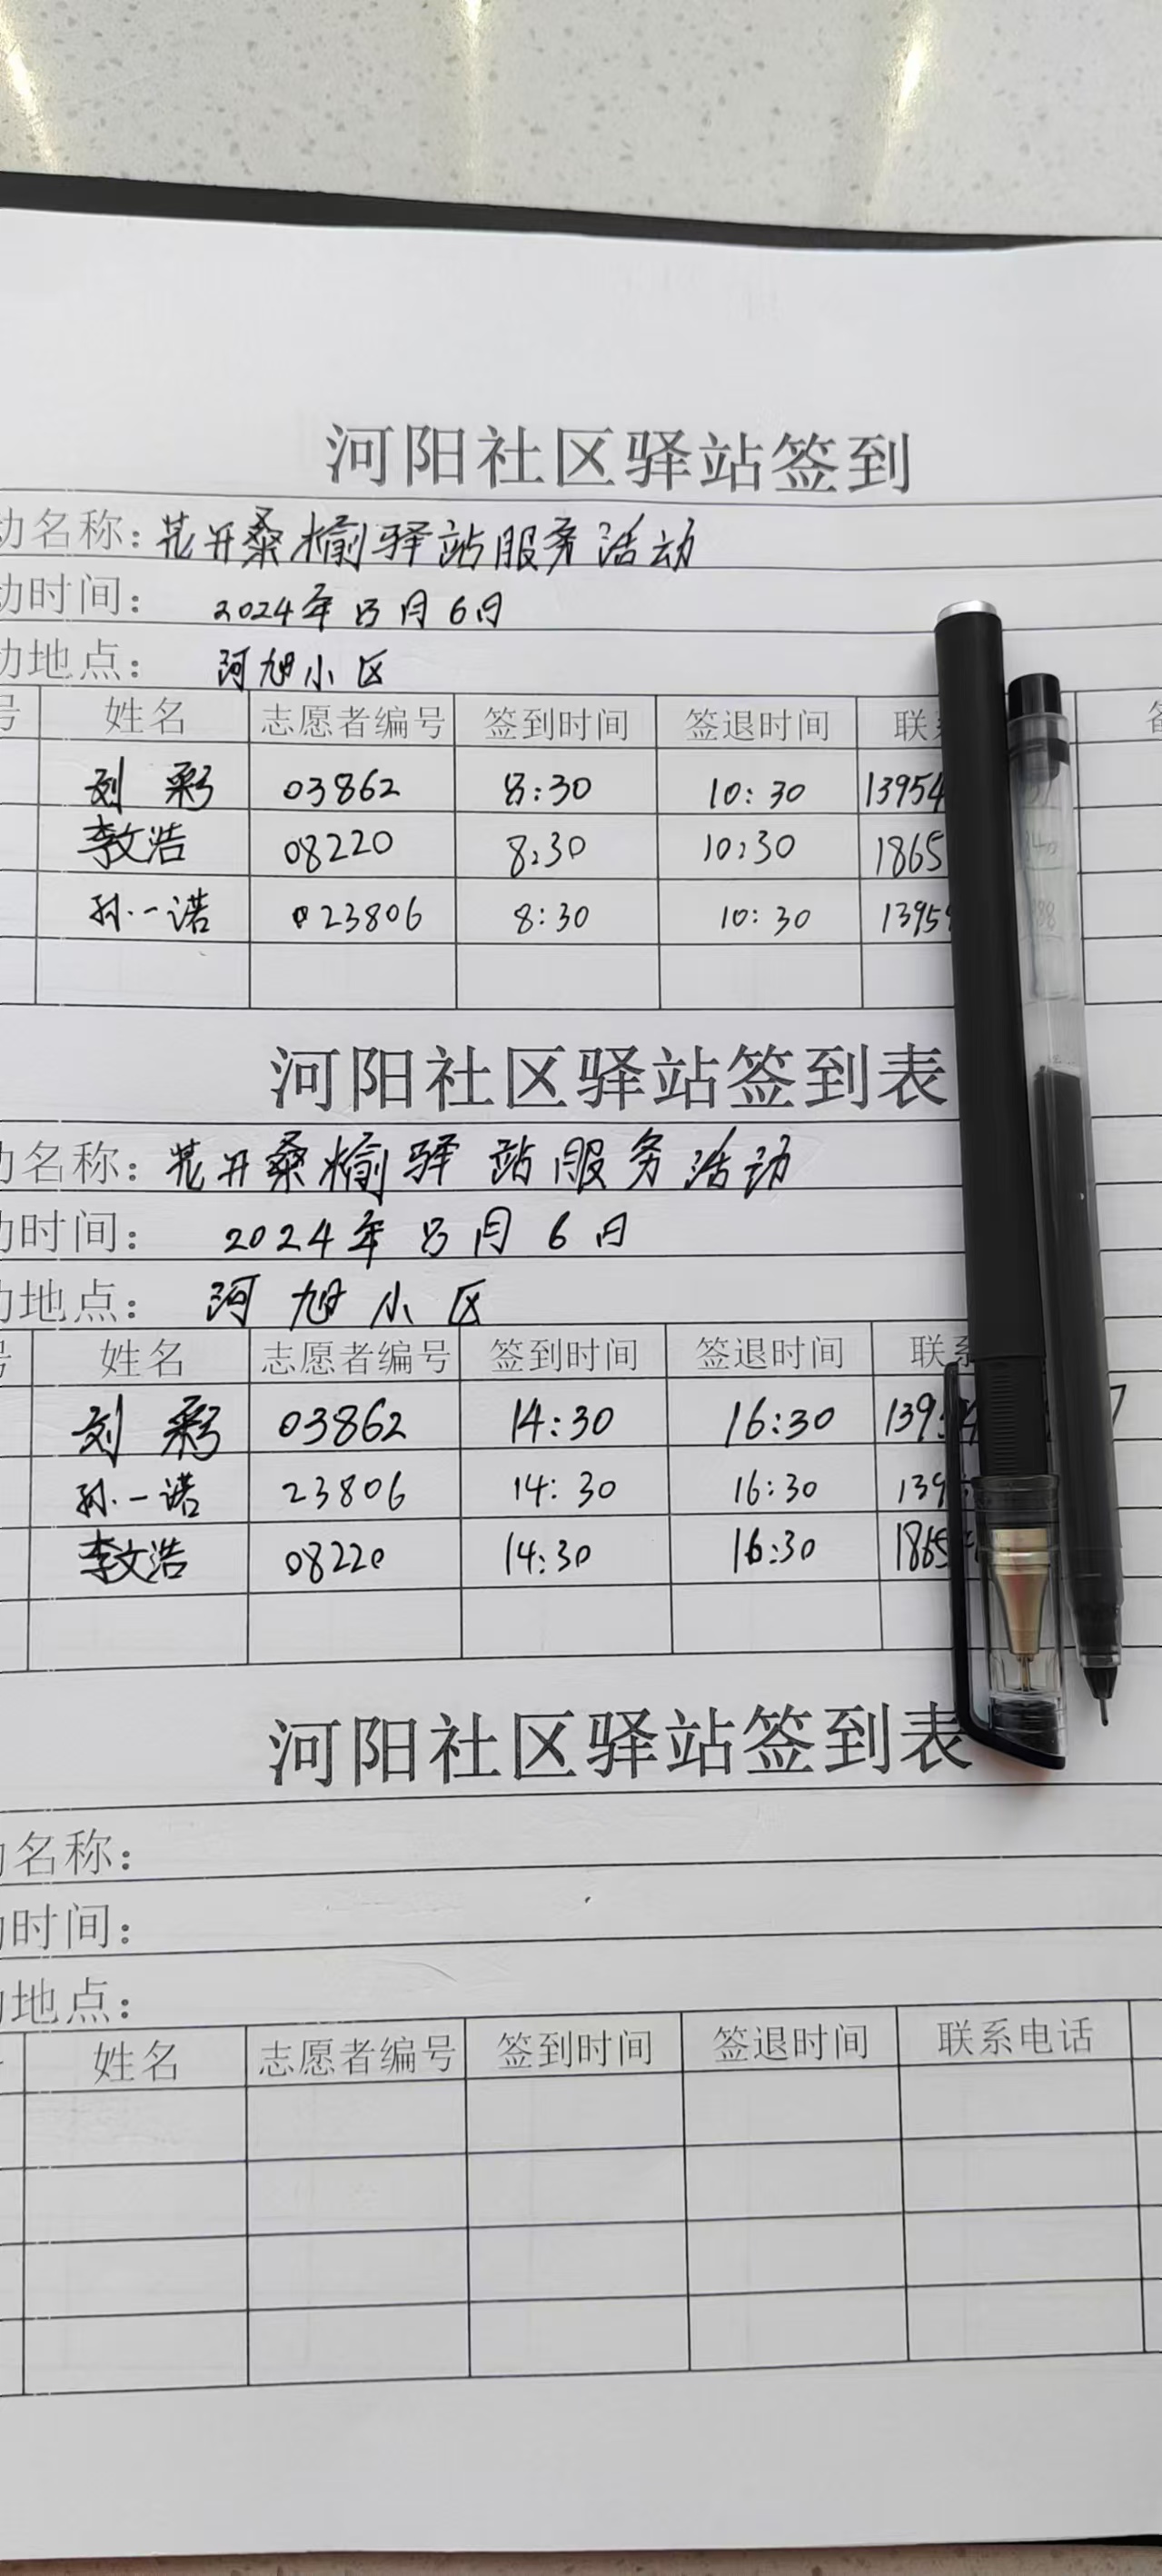 河阳社区驿站签到
动名称：花开桑榆驿站服务活动
动时间： 2024年8月6日
动地点： 河旭小区
号 姓名 志愿者编号 签到时间 签退时间 联系
刘彩 03862 8:30 10:30 13954
李文浩 08220 8:30 10:30 1865
孙一诺 023806 8:30 10:30 1395
河阳社区驿站签到表
动名称：花开桑榆驿站服务活动
动时间： 2024年8月6日
动地点： 河旭小区
号 姓名 志愿者编号 签到时间 签退时间 联系
刘彩 03862 14:30 16:30 139
孙一诺 23806 14:30 16:30 139
李文浩 08220 14:30 16:30 1865
河阳社区驿站签到表
名称：
时间：
地点：
姓名 志愿者编号 签到时间 签退时间 联系电话